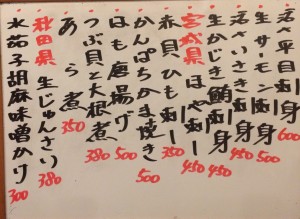 活〆平目刺身 600
生サモン刺身 500
活〆いさき刺身 450
生かじき鮪刺身 450
宮城県 ほや刺し 450
赤貝ひも刺し 350
かんぱちかま焼き 500
はも唐揚げ 500
つぶ貝と大根煮 380
あら煮 350
秋田県 生じゅんさい 380
水茄子胡麻味噌かけ 300